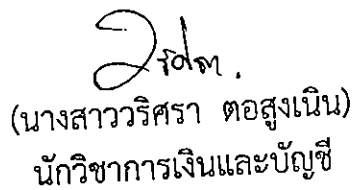 (นางสาววริศรา ตอสูงเนิน)
นักวิชาการเงินและบัญชี